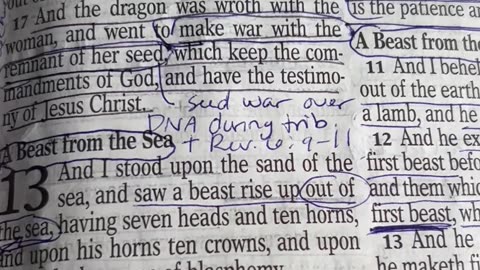 17 And the dragon was wroth with the
woman, and went to make war with the
remnant of her seed, which keep the com-
mandments of God, and have the testimo-
ny of Jesus Christ.
war over
DNA during trib
+ Rev. 6:9-11
A Beast from the Sea
13 And I stood upon the sand of the
sea, and saw a beast rise up out of
the sea, having seven heads and ten horns,
and upon his horns ten crowns, and upon
is the patience
A Beast from the
11 And I behel
out of the earth
a lamb, and he
12 And he ex
first beast befo
and them whic
first beast, wh
13 And he
he maketh fi